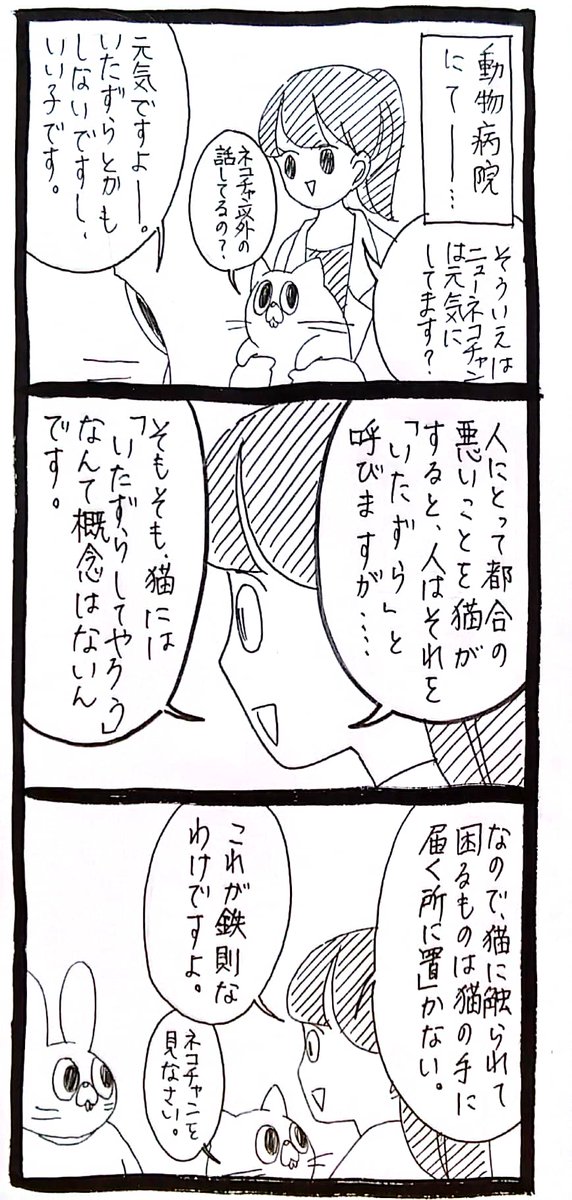 動物病院
にて——…
そういえば
ニューネコチャン
は元気に
してます?
ネコチャン以外の
話してるの?
元気ですよー。
いたずらとかも
しないですし、
いい子です。
人にとって都合の
悪いことを猫が
すると、人はそれを
「いたずら」と
呼びますが…
そもそも、猫には
「いたずらしてやろう」
なんて概念はないん
です。
なので、猫に触られて
困るものは猫の手に
届く所に置かない。
これが鉄則な
わけですよ。
ネコチャンを
見なさい。